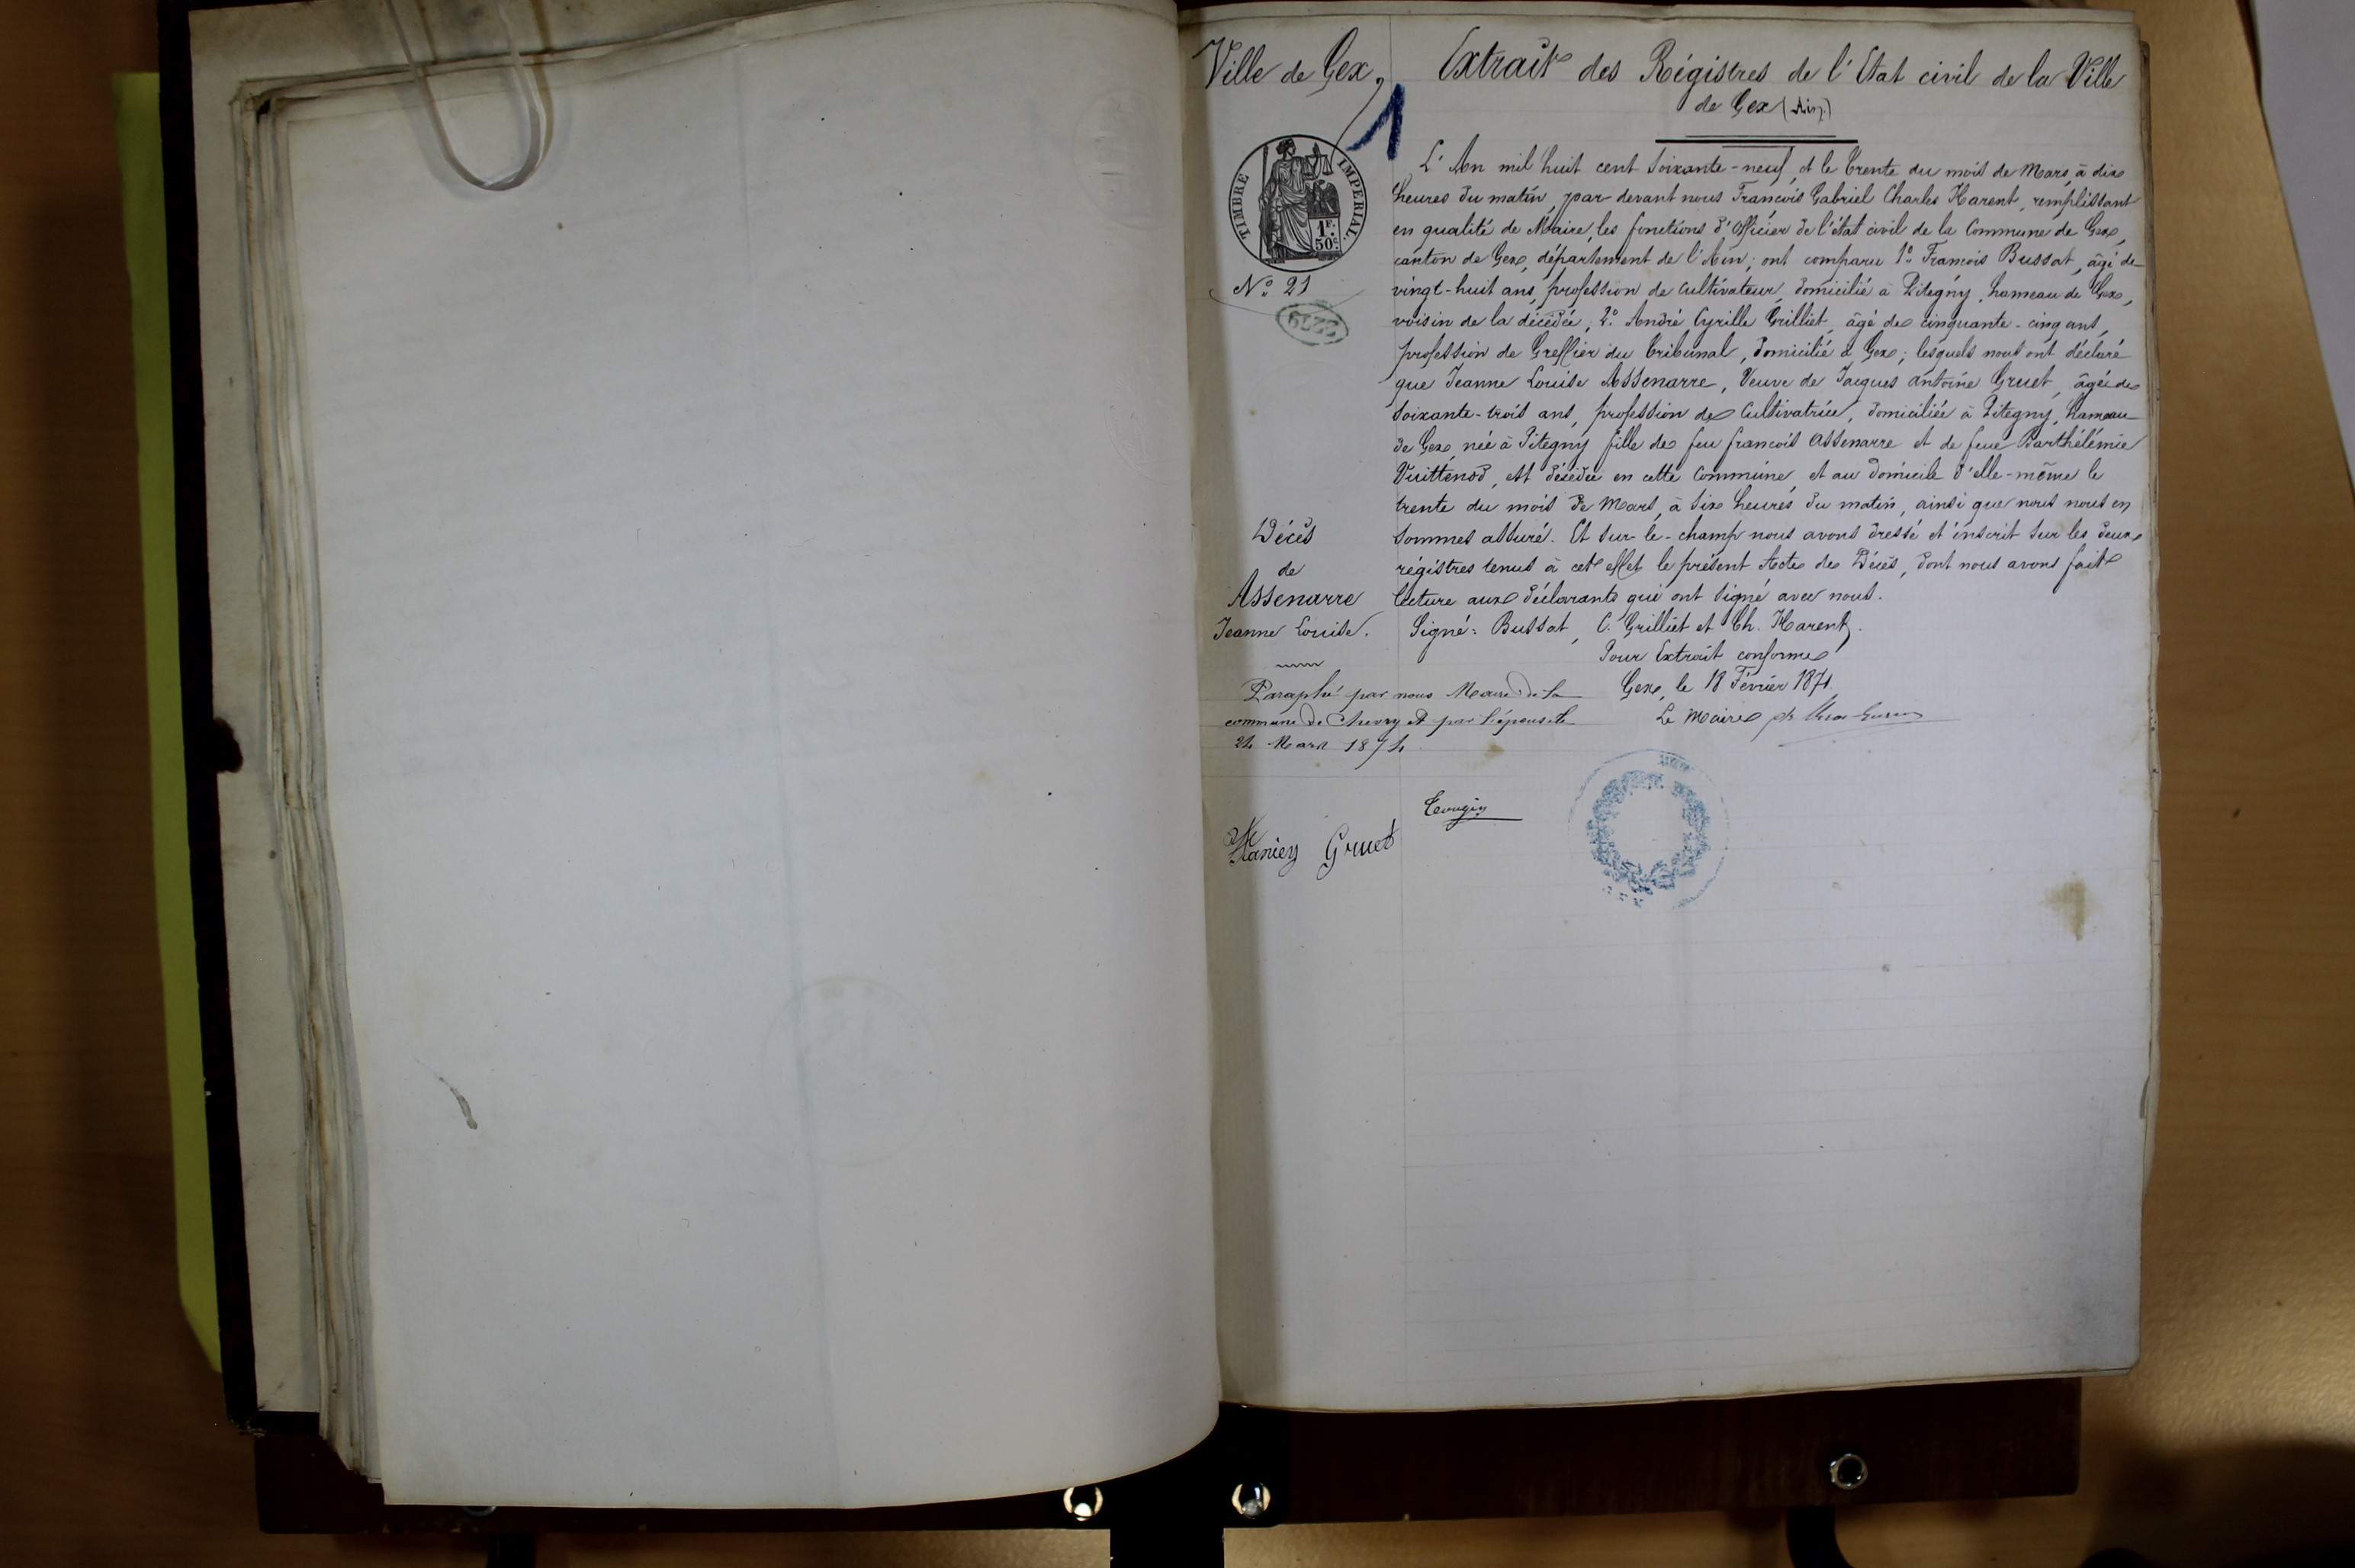 Ville de Gex,
Extrait des Régistres de l'Etat civil de la Ville
de Gex (Ain)
1
TIMBRE IMPERIAL.
1F.
50c.
N° 21
2279
L'An mil huit cent soixante-neuf, et le trente du mois de Mars, à dix
heures du matin, par devant nous François Gabriel Charles Harent, remplissant
en qualité de Maire, les fonctions d'Officier de l'état civil de la Commune de Gex,
canton de Gex, département de l'Ain; ont comparu 1° François Bussat, âgé de
vingt-huit ans, profession de cultivateur, domicilié à Pitegny, hameau de Gex,
voisin de la décédée; 2° André Cyrille Grilliet, âgé de cinquante-cinq ans,
profession de Greffier du tribunal, domicilié à Gex; lesquels nous ont déclaré
que Jeanne Louise Assenarre, Veuve de Jacques Antoine Gruet, âgée de
soixante-trois ans, profession de Cultivatrice, domiciliée à Pitegny, hameau
de Gex, née à Pitegny fille de feu françois Assenarre et de feue Barthélémie
Vuittenod, est décédée en cette Commune, et au domicile d'elle-même le
trente du mois de Mars, à six heures du matin, ainsi que nous nous en
sommes assuré. Et sur-le-champ nous avons dressé et inscrit sur les deux
régistres tenus à cet effet le présent Acte de Décès, dont nous avons fait
lecture aux déclarants qui ont signé avec nous.
Signé: Bussat, C. Grilliet et Ch. Harent.
Pour Extrait conforme
Gex, le 18 Février 1871
Le Maire
Décès
de
Assenarre
Jeanne Louise.
Paraphé par nous Maire de la
commune de Chevry et par l'épouse le
24 Mars 1874
Tougin
Gruet